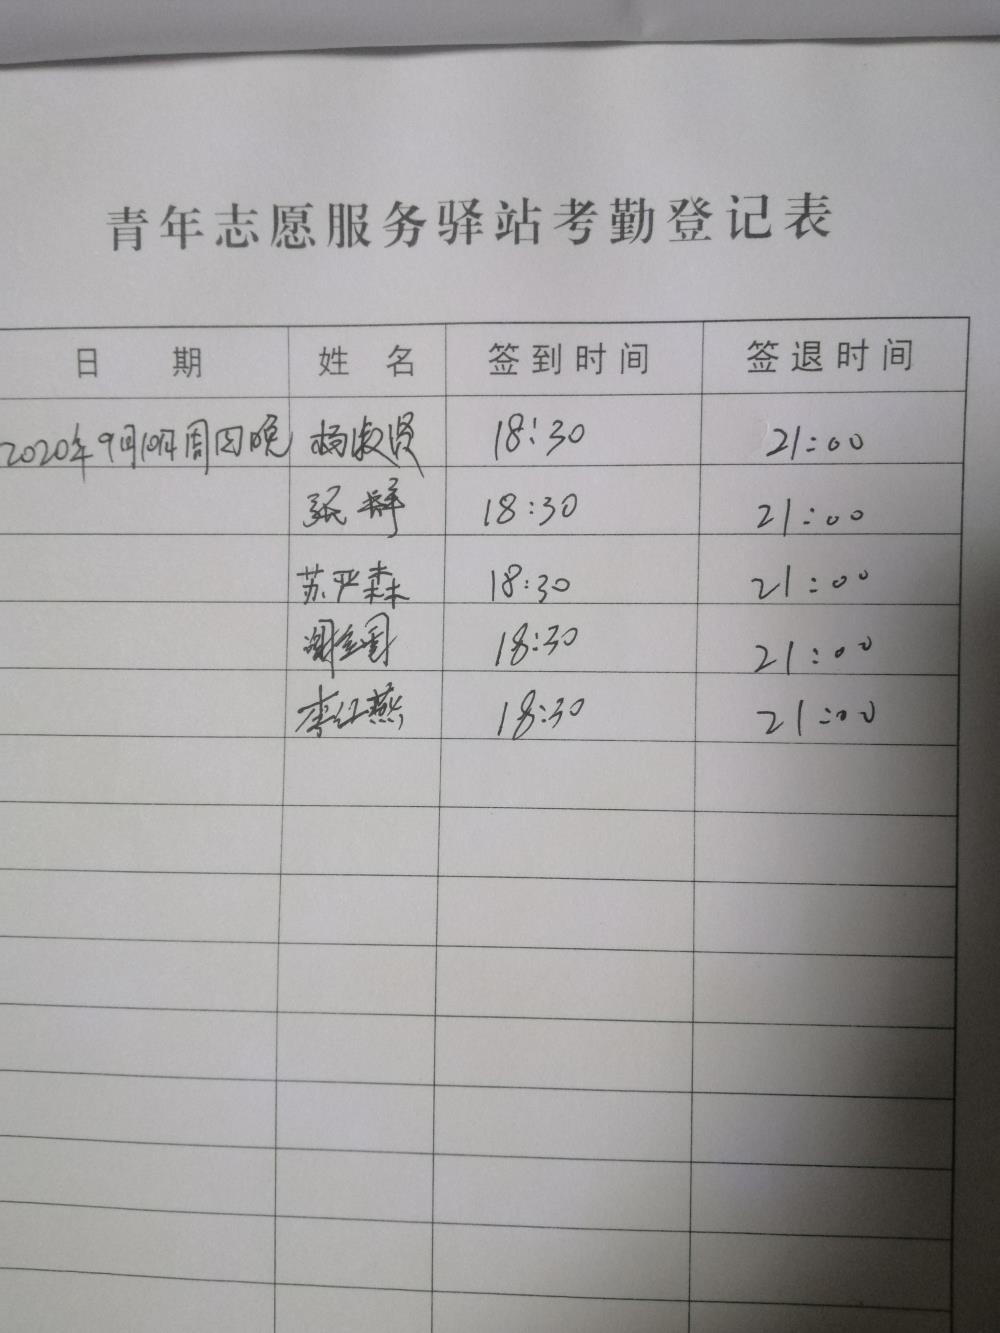 青年志愿服务驿站考勤登记表
日 期 姓 名 签到时间 签退时间
2020年9月10日周四晚 杨淑贤 18:30 21:00
张 18:30 21:00
苏严森 18:30 21:00
谢 18:30 21:00
李红燕 18:30 21:00